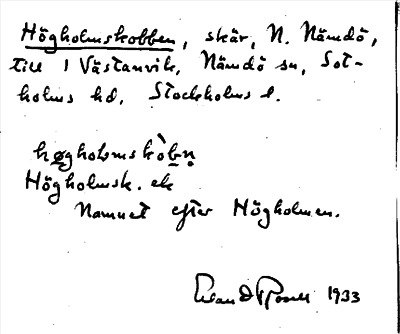 Högholmskobben, skär, N. Nämdö,
till 1 Västanvik, Nämdö sn, Sot-
holms hd, Stockholms l.
høgholmskòbṇ
Högholmsk. ek
Namnet efter Högholmen.
1933